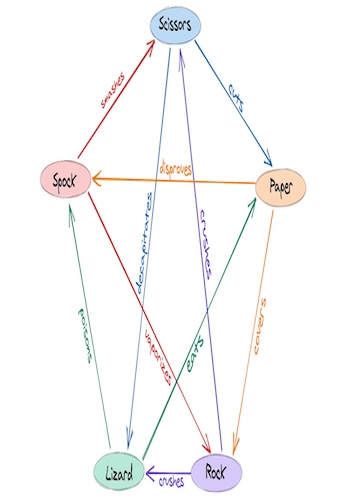 Scissors
smashes
cuts
Spock
disproves
Paper
decapitates
crushes
poisons
vaporizes
eats
covers
Lizard
crushes
Rock